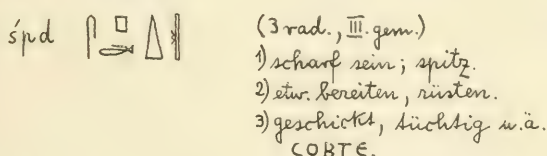 śpd 𓋴𓊪𓂧𓇮𓏜 (3 rad., III. gem.)
1) scharf sein; spitz.
2) etw. bereiten, rüsten.
3) geschickt, tüchtig u. ä.
ⲤⲞⲂⲦⲈ.